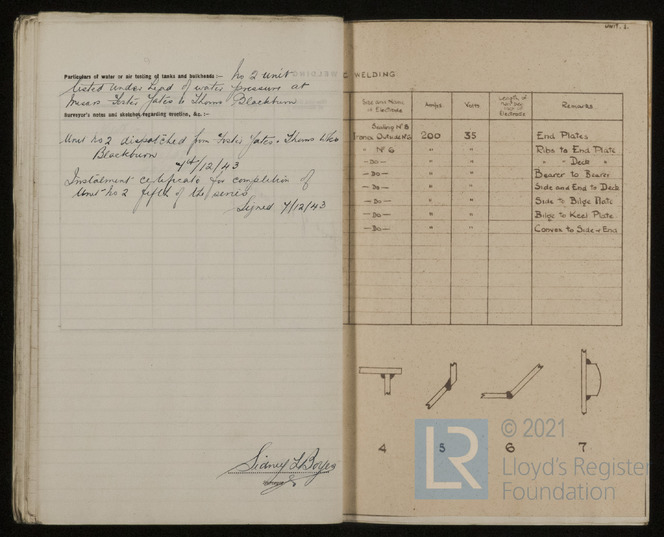 Particulars of water or air testing of tanks and bulkheads :— No 2 unit
tested under head of water pressure at
Messrs Foster Yates & Thoms Blackburn
Surveyor's notes and sketches regarding erection, &c. :—
Unit No 2 dispatched from Foster Yates & Thoms Wks
Blackburn
7th/12/43
Instalment certificate for completion of
Unit No 2 fifth of the series
Signed 7/12/43
Sidney L Boyes
UNIT. 2.
C WELDING
Size and Name of Electrode
Amps.
Volts
Length of run per rod of Electrode
Remarks
Sealing Nº 8
Outside Nº 6 200 35 End Plates
" Nº 6 " " Ribs to End Plate
— Do — " " " " Deck "
— Do — " " Bearer to Bearer
— Do — " " Side and End to Deck
— Do — " " Side to Bilge Plate
— Do — " " Bilge to Keel Plate
— Do — " " Convex to Side & End
4 5 6 7
LR
© 2021
Lloyd's Register
Foundation